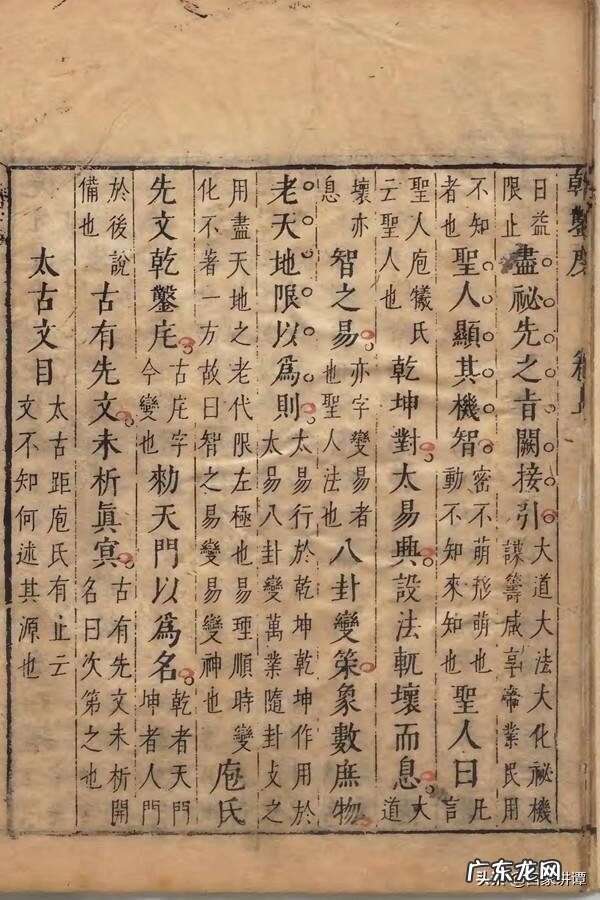 乾鑿度　卷上
日益限止盡祕先之旨闢接引大道大法大化祕機謀籌咸享帝業民用
不知者也聖人顯其機智密不萌形萌也動不知來知也聖人曰凡言
聖人庖犧氏云聖人也乾坤對太易典設法軏壞而息大道
壞亦息智之易亦字變易者也聖人法也八卦變策象數庶物
老天地限以爲則太易行於乾坤乾坤作用於太易八卦變萬業隨卦攴之
用盡天地之老代限左極也易理順時變化不著一方故曰智之易變易變神也庖氏
先文乾鑿㡯古㡯字今變也勑天門以爲名乾者天門坤者人門
於後說備也古有先文未析眞㝠古有先文未析開名曰次第之也
太古文目太古距庖氏有止云文不知何述其源也
广东龙网